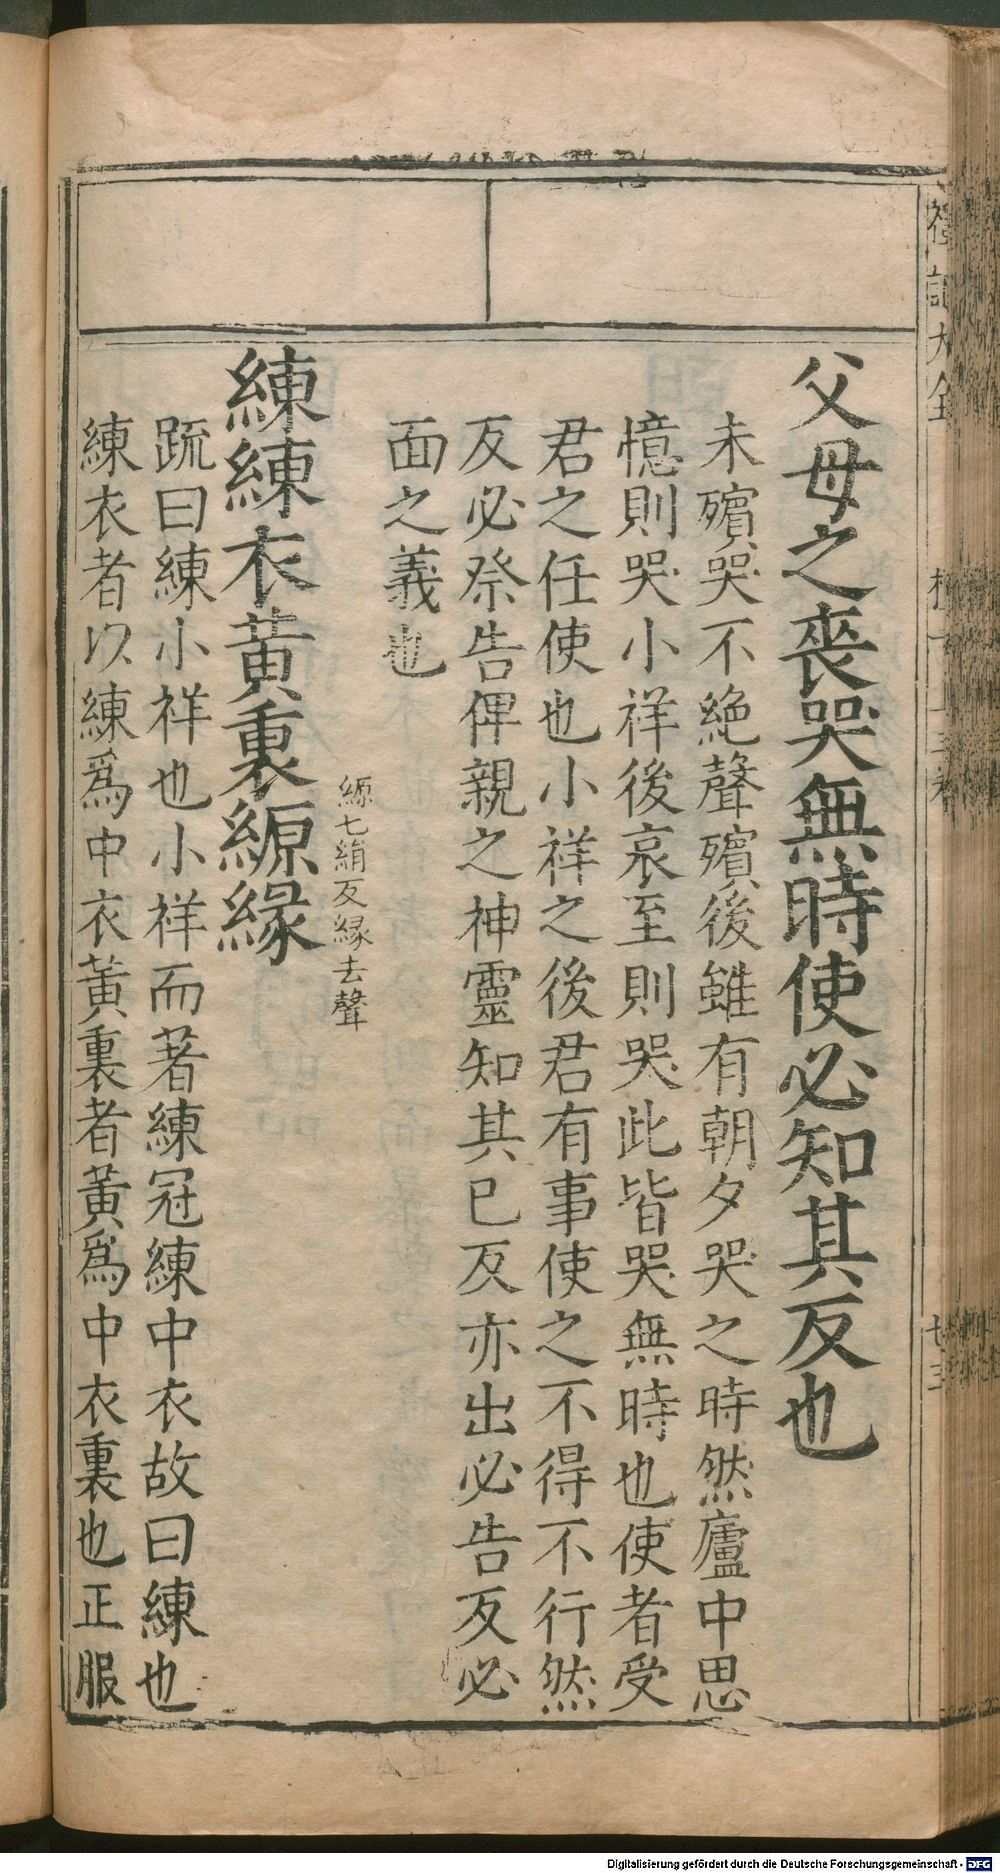 父母之喪哭無時使必知其反也
未殯哭不絶聲殯後雖有朝夕哭之時然廬中思
憶則哭小祥後哀至則哭此皆哭無時也使者受
君之任使也小祥之後君有事使之不得不行然
反必祭告俾親之神靈知其已反亦出必告反必
面之義也
縓七絹反緣去聲
練練衣黄裏縓緣
䟽曰練小祥也小祥而著練冠練中衣故曰練也
練衣者以練爲中衣黄裏者黄爲中衣裏也正服
Digitalisierung gefördert durch die Deutsche Forschungsgemeinschaft - DFG